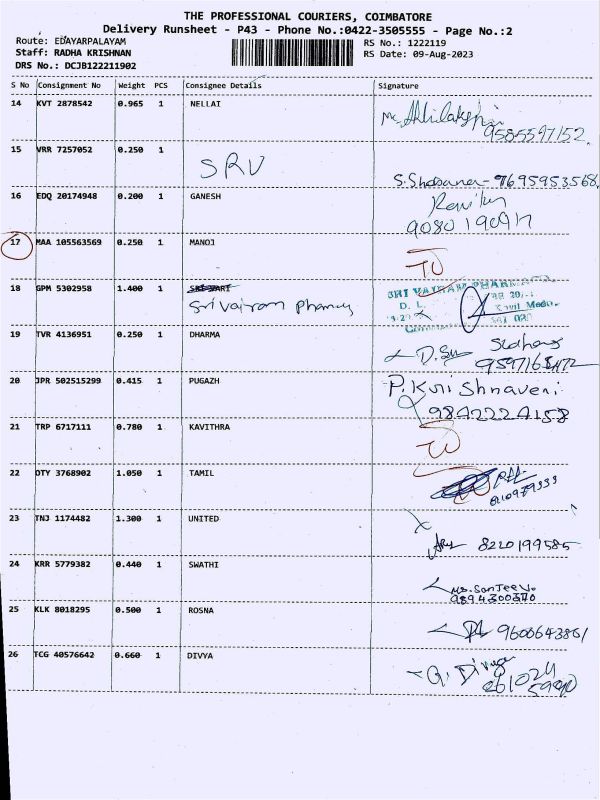 THE PROFESSIONAL COURIERS, COIMBATORE
Delivery Runsheet - P43 - Phone No.:0422-3505555 - Page No.:2
Route: EDAYARPALAYAM
Staff: RADHA KRISHNAN
DRS No.: DCJB122211902
RS No.: 1222119
RS Date: 09-Aug-2023
S No Consignment No Weight PCS Consignee Details Signature
14 KVT 2878542 0.965 1 NELLAI
9585597152.
15 VRR 7257052 0.250 1
SRV
S.Shobana - 7695953568,
16 EDQ 20174948 0.200 1 GANESH
17 MAA 105563569 0.250 1 MANOJ
18 GPM 5302958 1.400 1
Sri Vairam Pharmacy
SRI VAIRAM PHARMACY
D. L.
19 TVR 4136951 0.250 1 DHARMA
20 JPR 502515299 0.415 1 PUGAZH
P.Krishnaveni
9842224158
21 TRP 6717111 0.780 1 KAVITHRA
22 OTY 3768902 1.050 1 TAMIL
8110979333
23 TNJ 1174482 1.300 1 UNITED
8220199585
24 KRR 5779382 0.440 1 SWATHI
25 KLK 8018295 0.500 1 ROSNA
9600643861
26 TCG 40576642 0.660 1 DIVYA
G. Divya